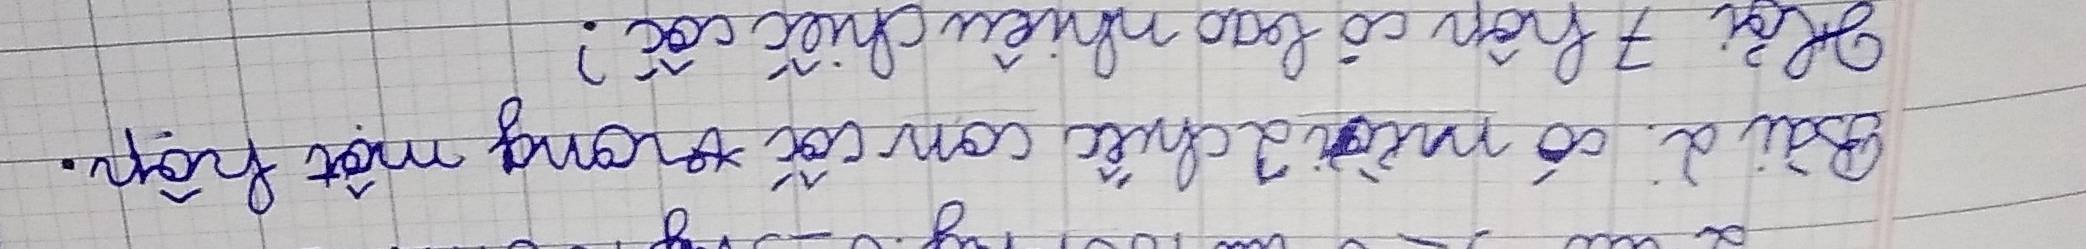 Bài 2. có mười 2 chiếc con cốc trong một hộp.
Hỏi 7 hộp có bao nhiêu chiếc cốc?